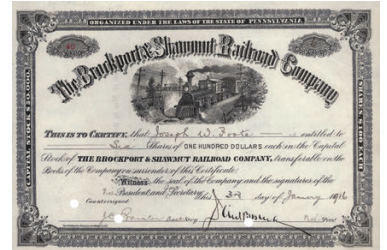 ORGANIZED UNDER THE LAWS OF THE STATE OF PENNSYLVANIA
The Brockport & Shawmut Railroad Company
THIS IS TO CERTIFY, that Joseph W. Foote is entitled to
Six Shares of ONE HUNDRED DOLLARS each in the Capital
Stock of THE BROCKPORT & SHAWMUT RAILROAD COMPANY, transferable on the
Books of the Company on surrender of this Certificate.
Witness the seal of the Company and the signatures of the
President and Secretary this 3rd day of January 1916
Countersigned
CAPITAL STOCK
SHARES $100 EACH